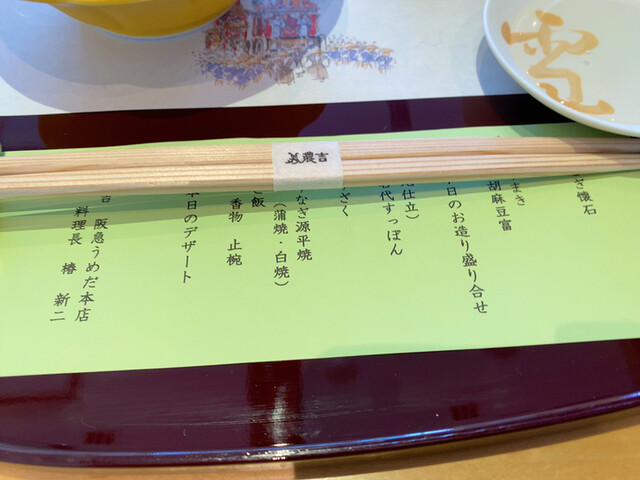 美濃吉
ぎ懐石
まき
胡麻豆富
日のお造り盛り合せ
仕立）
代すっぽん
ざく
なぎ源平焼
（蒲焼・白焼）
飯
香物 止椀
本日のデザート
阪急うめだ本店
料理長 椿 新二